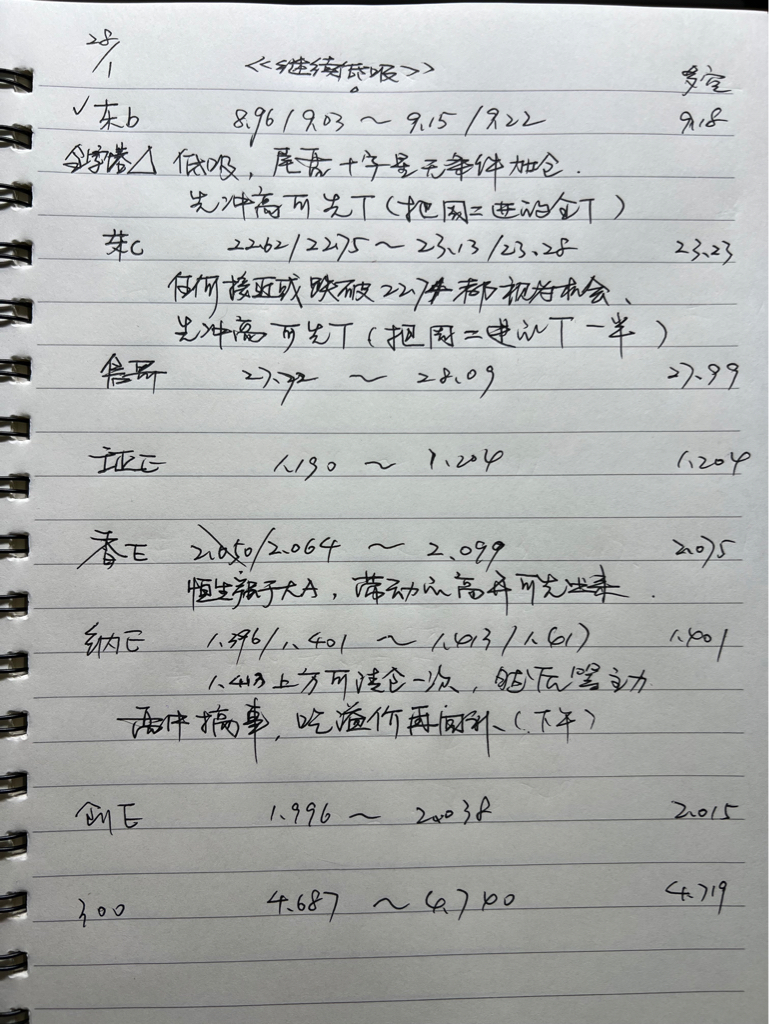 28/1 《继续低吸》 多空
✓东b 8.96/9.03～9.15/9.22 9.18
金字塔△低吸，尾盘十字星无条件加仓.
先冲高可先T(把周二进的全T)
芽C 22.62/22.75～23.13/23.28 23.23
任何接近或跌破22.7都视为机会、
先冲高可先T(把周二进的T一半)
27.32～28.09 27.99
证E 1.190～1.204 1.204
香E 2.050/2.064～2.099 2.075
恒生强于大A，带动的高开可先出来.
纳E 1.396/1.401～1.413/1.417 1.401
1.413上方可清仓一次，主力
盘中搞事，吃溢价再回补、(下午)
创E 1.996～2.038 2.015
300 4.687～4.740 4.719